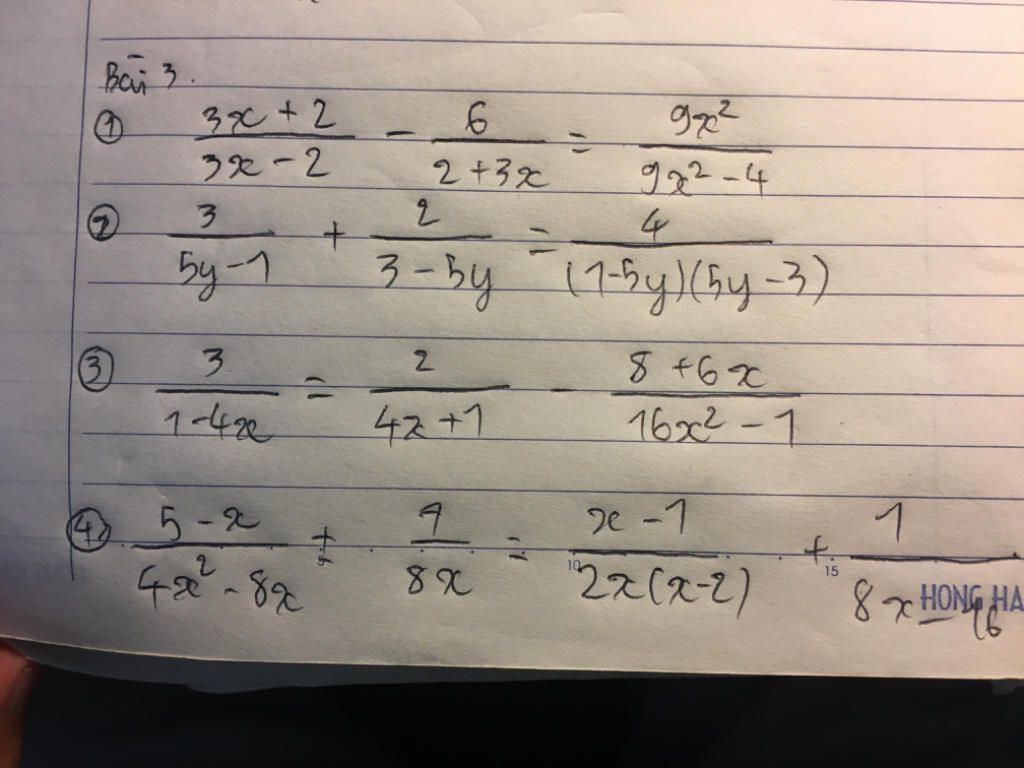 Bài 3.
① (3x + 2)/(3x - 2) - 6/(2 + 3x) = 9x²/(9x² - 4)
② 3/(5y - 1) + 2/(3 - 5y) = 4/((1-5y)(5y - 3))
③ 3/(1-4x) = 2/(4x + 1) - (8 + 6x)/(16x² - 1)
④ (5 - x)/(4x² - 8x) + 7/(8x) = (x - 1)/(2x(x-2)) + 1/(8x - 16)
5 10 15
HONG HA